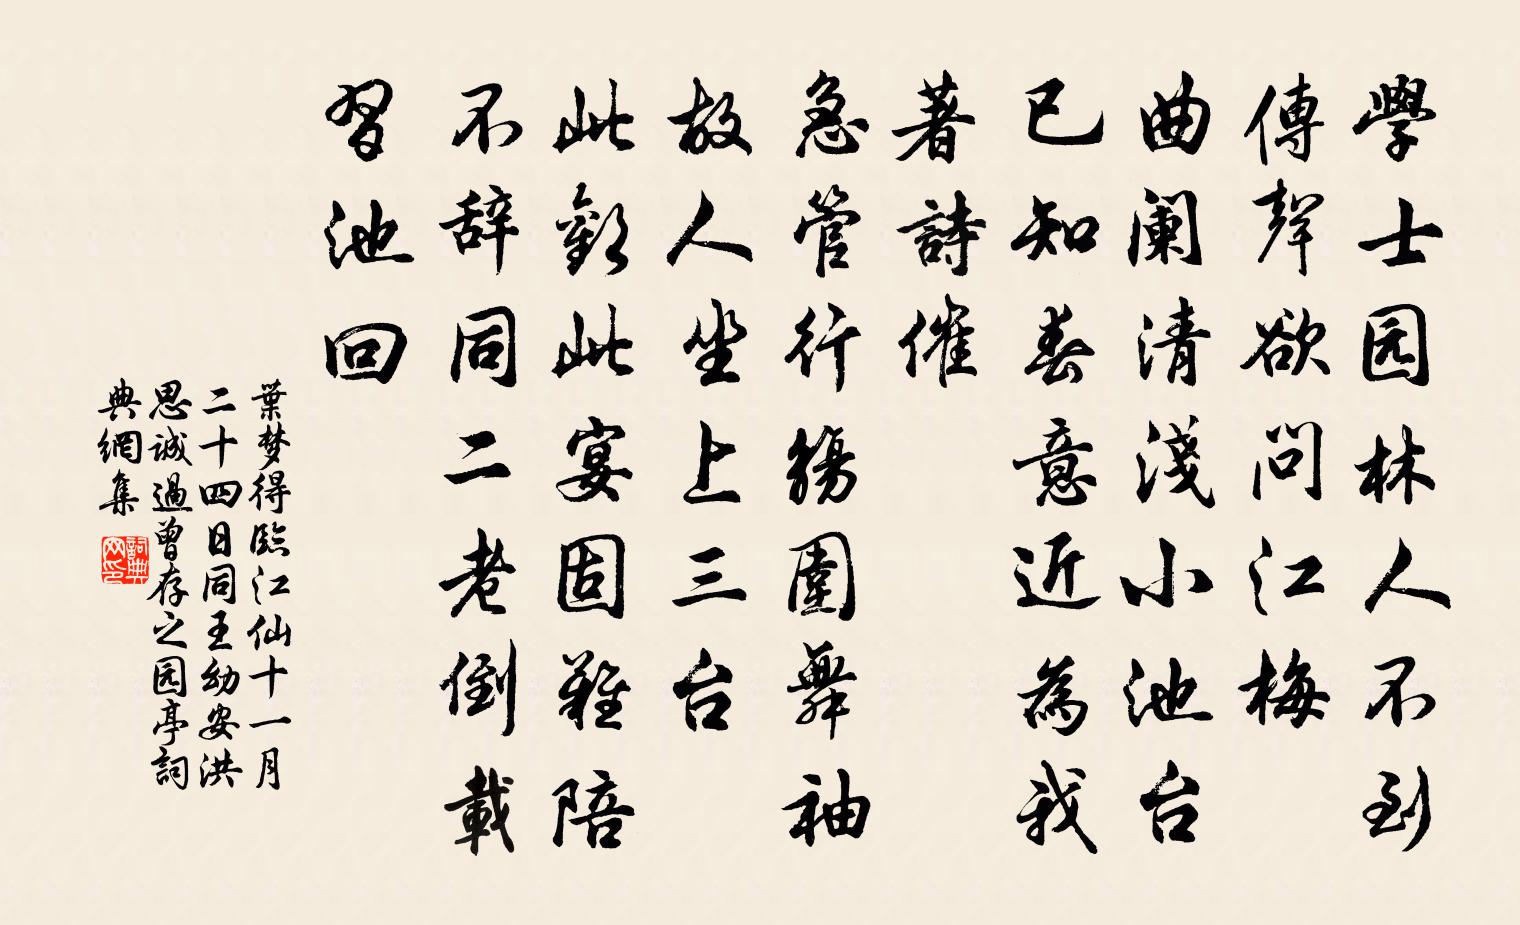 學士园林人不到
傳聲欲问江梅
曲阑清淺小池台
已知春意近為我
著詩催
急管行觴圍舞袖
故人坐上三台
此歡此宴固難陪
不辞同二老倒載
習池回
葉梦得臨江仙十一月
二十四日同王幼安洪
思誠過曾存之园亭詞
典網集
詞典
网印